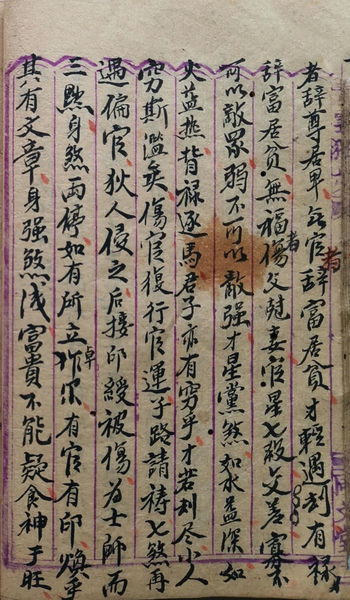 者辞尊居卑無官辞富居贫才輕遇刦有禄
辞富居贫無福傷父尅妻者官星七殺父善寡不
可以敵眾弱不可以敵强才星黨煞如水益深如
火益热背禄逐馬君子亦有穷乎才若刦尽小人
穷斯濫矣傷官復行官運子路請禱七煞再
遇偏官狄人侵之后接印綬被傷为士師而
三黜身煞两停如有所立卓有官有印煥乎
其有文章身强煞浅富貴不能疑食神于旺
者